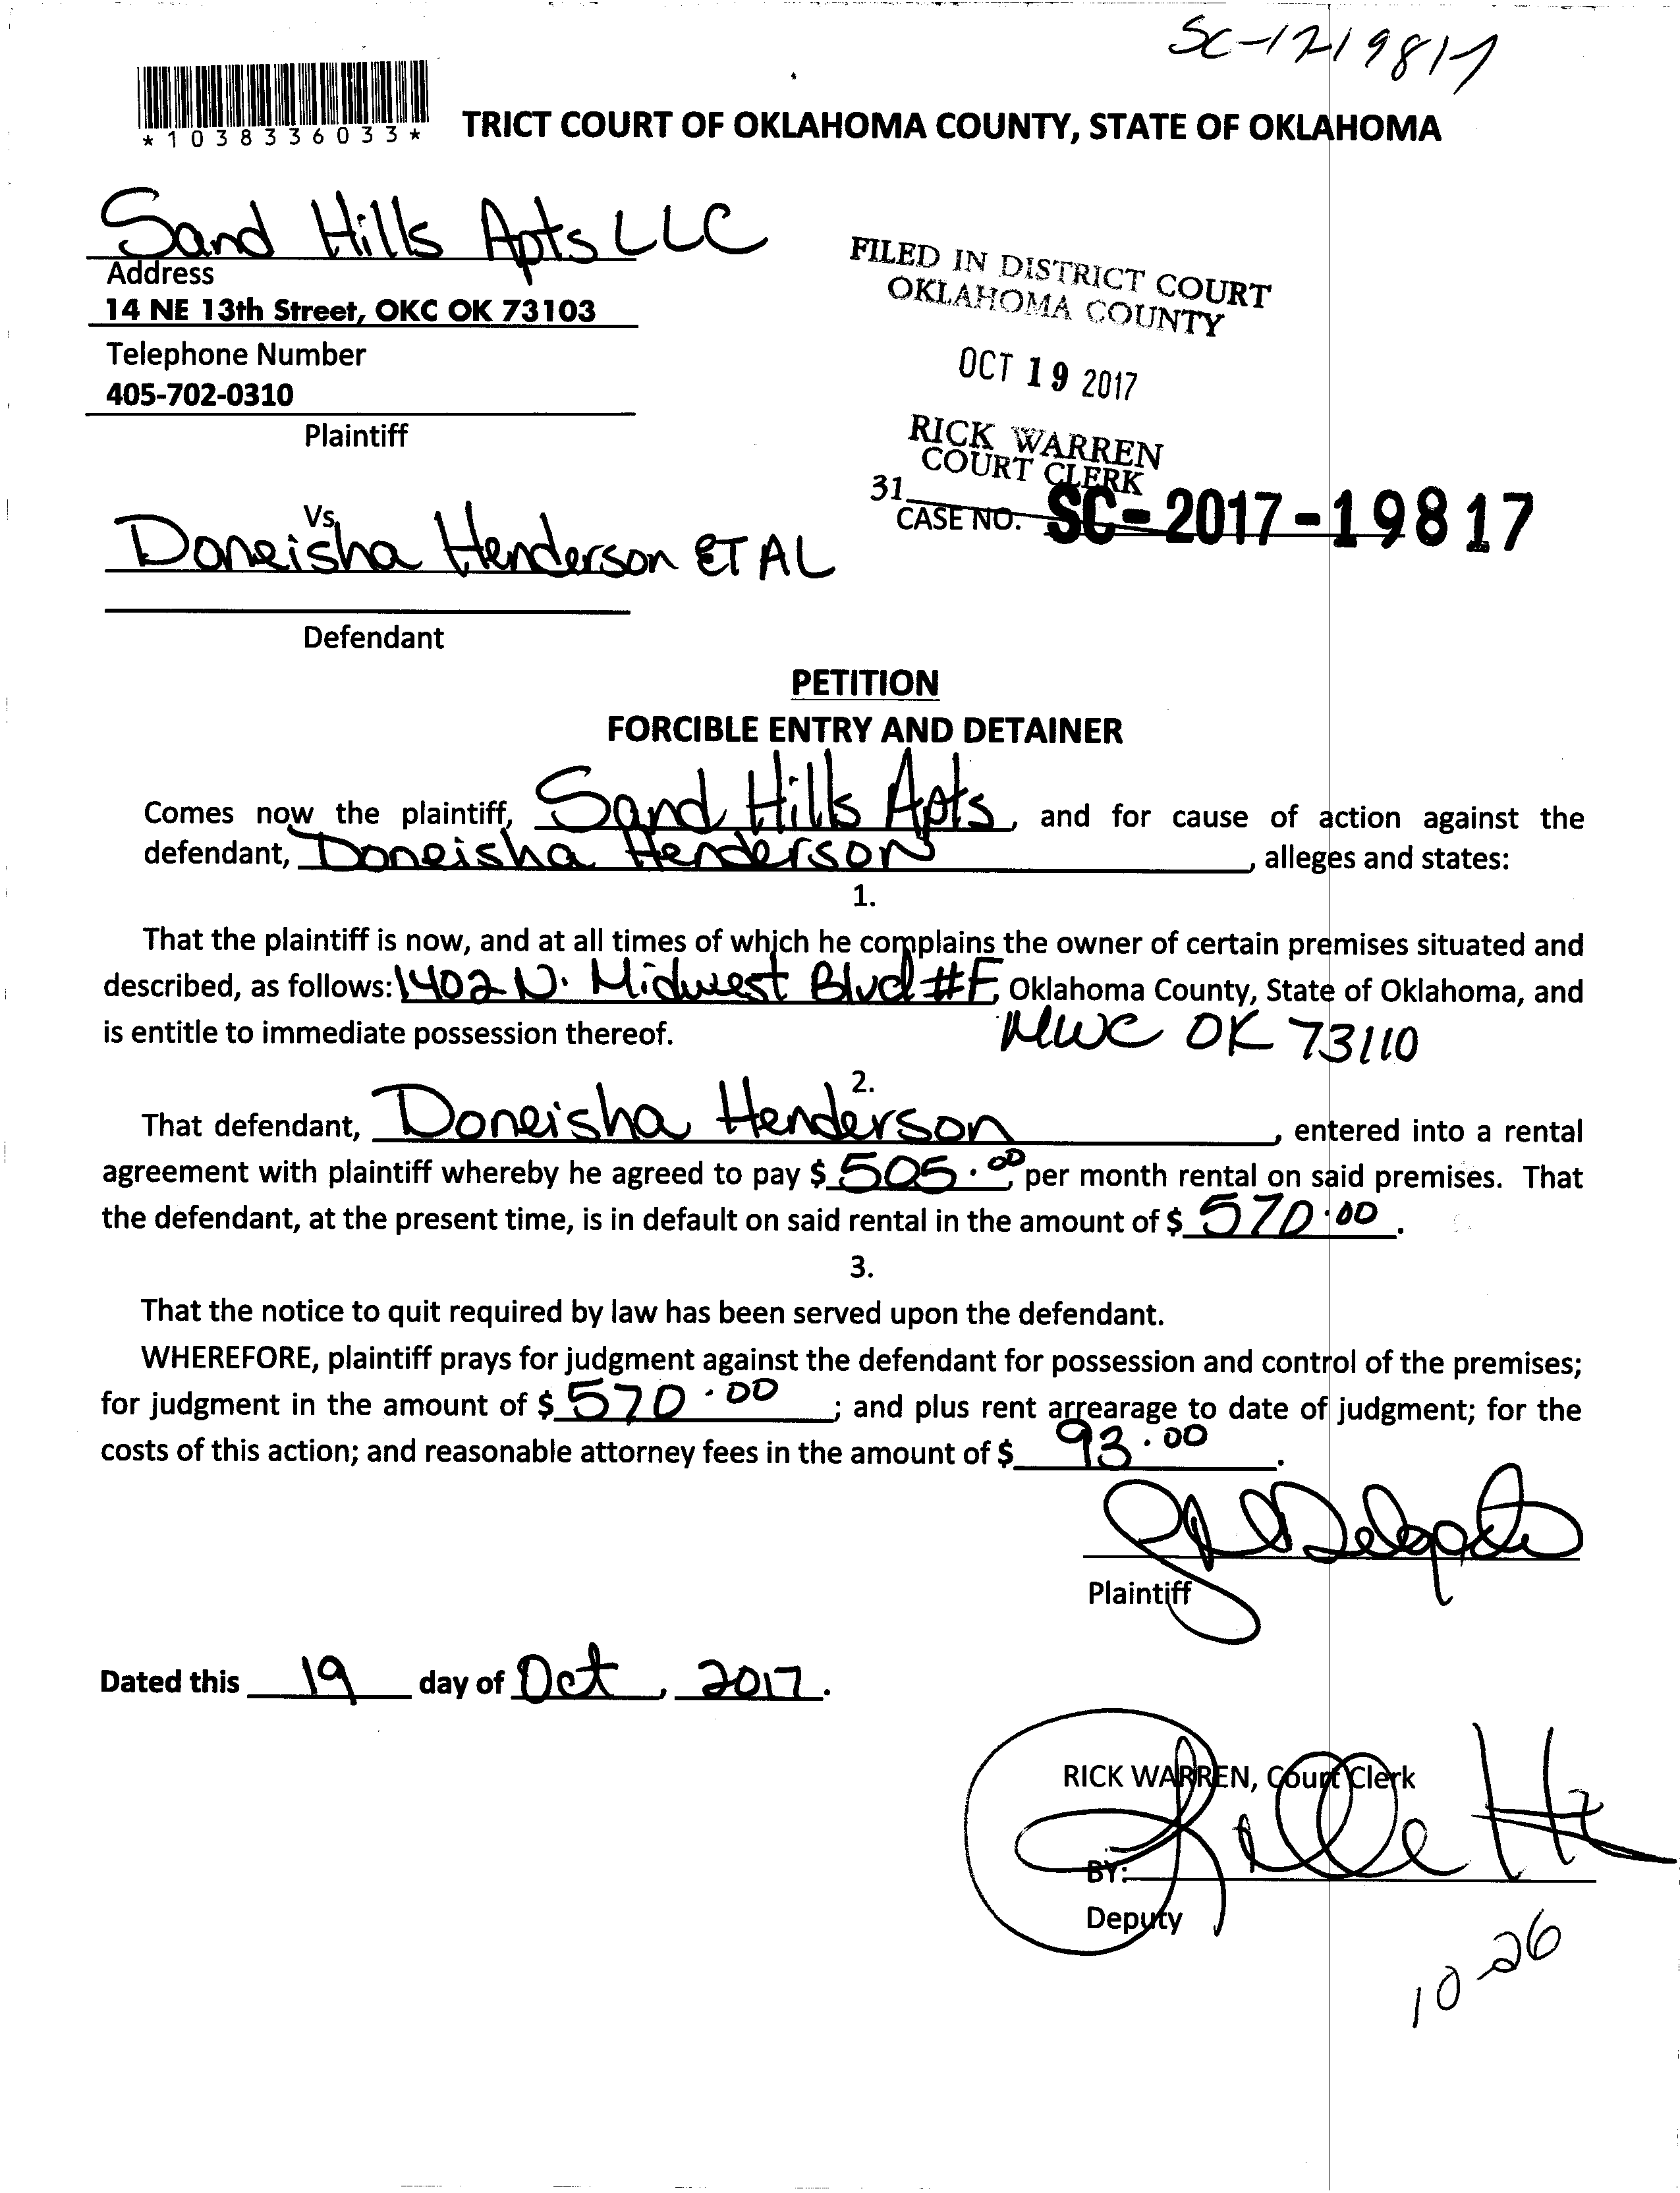 SC-17-19817
*1038336033*
TRICT COURT OF OKLAHOMA COUNTY, STATE OF OKLAHOMA
Sand Hills Apts LLC
Address
14 NE 13th Street, OKC OK 73103
Telephone Number
405-702-0310
Plaintiff
FILED IN DISTRICT COURT
OKLAHOMA COUNTY
OCT 19 2017
RICK WARREN
COURT CLERK
31
CASE NO. SC-2017-19817
Vs.
Doneisha Henderson ET AL
Defendant
PETITION
FORCIBLE ENTRY AND DETAINER
Comes now the plaintiff, Sand Hills Apts, and for cause of action against the
defendant, Doneisha Henderson, alleges and states:
1.
That the plaintiff is now, and at all times of which he complains the owner of certain premises situated and
described, as follows: 1402 N. Midwest Blvd #F, Oklahoma County, State of Oklahoma, and
is entitle to immediate possession thereof. MWC OK 73110
2.
That defendant, Doneisha Henderson, entered into a rental
agreement with plaintiff whereby he agreed to pay $ 505.00, per month rental on said premises. That
the defendant, at the present time, is in default on said rental in the amount of $ 570.00.
3.
That the notice to quit required by law has been served upon the defendant.
WHEREFORE, plaintiff prays for judgment against the defendant for possession and control of the premises;
for judgment in the amount of $ 570.00; and plus rent arrearage to date of judgment; for the
costs of this action; and reasonable attorney fees in the amount of $ 93.00.
Delgado
Plaintiff
Dated this 19 day of Oct, 2017.
RICK WARREN, Court Clerk
BY:
Deputy
10-26